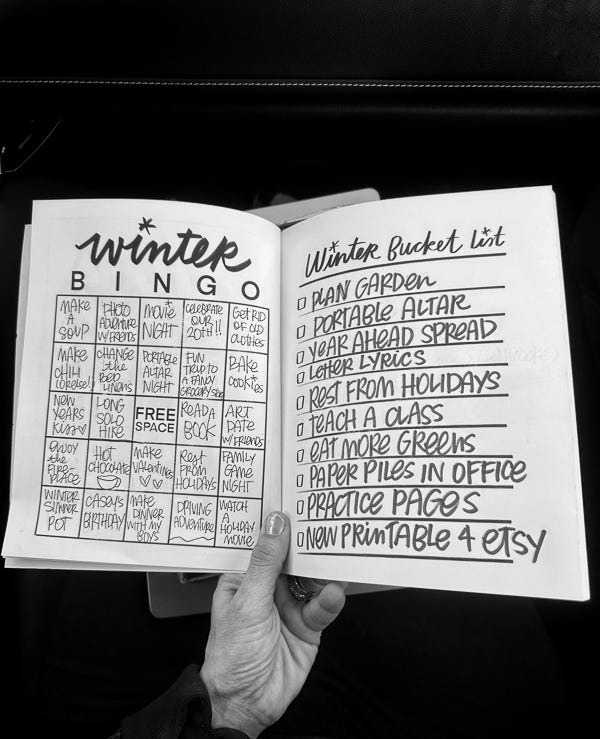 winter
BINGO
MAKE
A
SOUP
PHOTO
ADVENTURE
W/FRIENDS
MOVIE
NIGHT
CELEBRATE
OUR
20TH!!
GET RID
OF OLD
CLOTHES
MAKE
CHILI
(OR ELSE!)
CHANGE
the
BED
LINENS
PORTABLE
ALTAR
NIGHT
FUN
TRIP TO
A FANCY
GROCERY STORE
BAKE
COOKIES
NEW
YEARS
KISS
LONG
SOLO
HIKE
FREE
SPACE
READ A
BOOK
ART
DATE
W/FRIENDS
ENJOY
the
FIRE-
PLACE
HOT
CHOCOLATE
MAKE
VALENTINES
REST
FROM
HOLIDAYS
FAMILY
GAME
NIGHT
WINTER
SIMMER
POT
CASEY'S
BIRTHDAY
MAKE
DINNER
WITH MY
BOYS
DRIVING
ADVENTURE
WATCH
A
HOLIDAY
MOVIE
Winter Bucket List
PLAN GARDEN
PORTABLE ALTAR
YEAR AHEAD SPREAD
LETTER LYRICS
REST FROM HOLIDAYS
TEACH A CLASS
EAT MORE GREENS
PAPER PILES IN OFFICE
PRACTICE PAGES
NEW PRINTABLE 4 ETSY